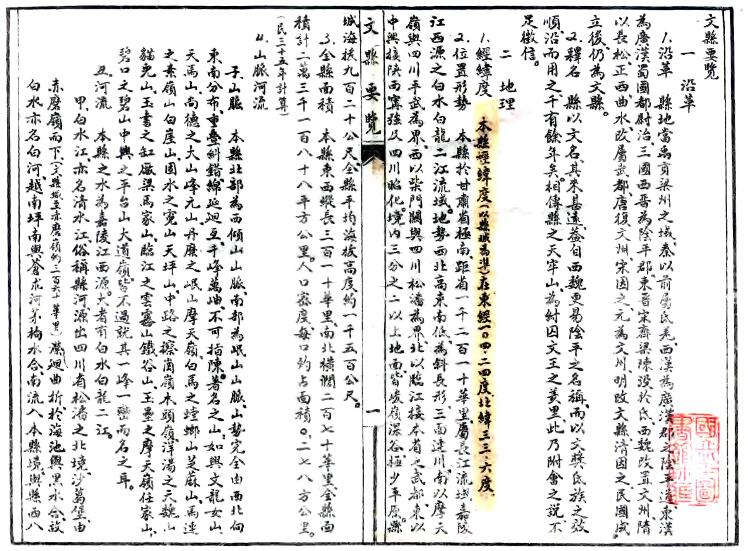 文縣要覽
一　沿革
1.沿革　縣地當禹貢梁州之域、秦以前屬氐羌、西漢為廣漢郡之陰平道、東漢
為廣漢蜀國都尉治、三國西晉為陰平郡、東晉宋齊梁陳沒於氐、西魏改置文州、隋
以長松正西曲水改屬武都、唐復文州、宋因之、元為文州、明改文縣、清因之、民國成
立後仍為文縣。
2.釋名　縣以文名其來甚遠、蓋自西魏更易陰平之名稱、而以文獎氐族之效
順、沿而用之、千有餘年矣、相傳縣之天牢山、為紂囚文王之羑里、此乃附會之說、不
足徵信。
二　地理
1.經緯度　本縣經緯度（以縣城為準）在東經一〇四·二四度、北緯三三·六度、
2.位置形勢　本縣於甘肅省極南、距省一千二百一十華里、屬長江流域、嘉陵
江西源之白水白龍二江流域、地勢西北高東南低、為斜長形、三面連川、南以摩天
嶺與四川平武為界、西以柴門關與四川松潘為界、北以臨江接本省之武都、東以
中興接陝西寧強及四川昭化、境內三分之二以上地面、皆峻嶺深谷、極少平原、縣
城海拔九百二十公尺、全縣平均海拔高度約一千五百公尺。
3.全縣面積　本縣東西縱長三百一十華里、南北橫濶二百七十華里、全縣面
積計一萬三千一百八十八平方公里。人口密度、每口約占面積〇、二七八方公里。
（民三十五年計算）
4.山脈河流
子、山脈　本縣北部為西傾山山脈、南部為岷山山脈、山勢完全由西北向
東南分布、重疊糾錯、綿延迴互、千峰萬岫、不可指陳、著名之山、如興文龍女山、
天馬山、尚德之大山、峰元山、丹庫之岷山、摩天嶺、白馬之螳螂山、芝蔴山、馬連
之素嶺山、白崖山、固水之寬山、天坪山、中路之擦崗嶺、木頭嶺、洋湯之天魏山、
貓兒山、玉書之缸廠梁、馬家山、臨江之雲霧山、鐵谷山、玉壘之摩天嶺、任家山、
碧口之碧山、中興之平台山、大道嶺、皆不過就其一峰一巒而名之耳。
丑、河流　本縣之水為嘉陵江西源、大者有白水白龍二江。
甲、白水江、亦名清水江、俗稱縣河、源出四川省松潘之北境、沙萬堡、由
赤磨嶺而下（文縣城至赤磨嶺約三百六十華里）、瀠迴曲折、於海池與黑水合、故
白水亦名白河、越南坪南與蒼求河、茅枸水合、南流入本縣境、與縣西八
文縣要覽
一